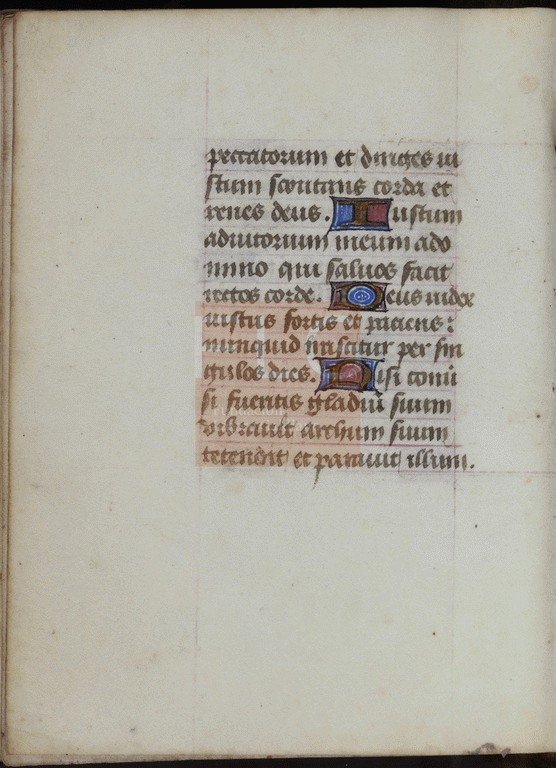 peccatorum et diriges iu
stum scrutans corda et
renes deus. Iustum
adiutorium meum a do
mino qui saluos facit
rectos corde. Deus iudex
iustus fortis et paciens:
nunquid irascitur per sin
gulos dies. Nisi conũ
si fueritis gladiũ suum
vibrauit archum suum
tetendit et parauit illum.